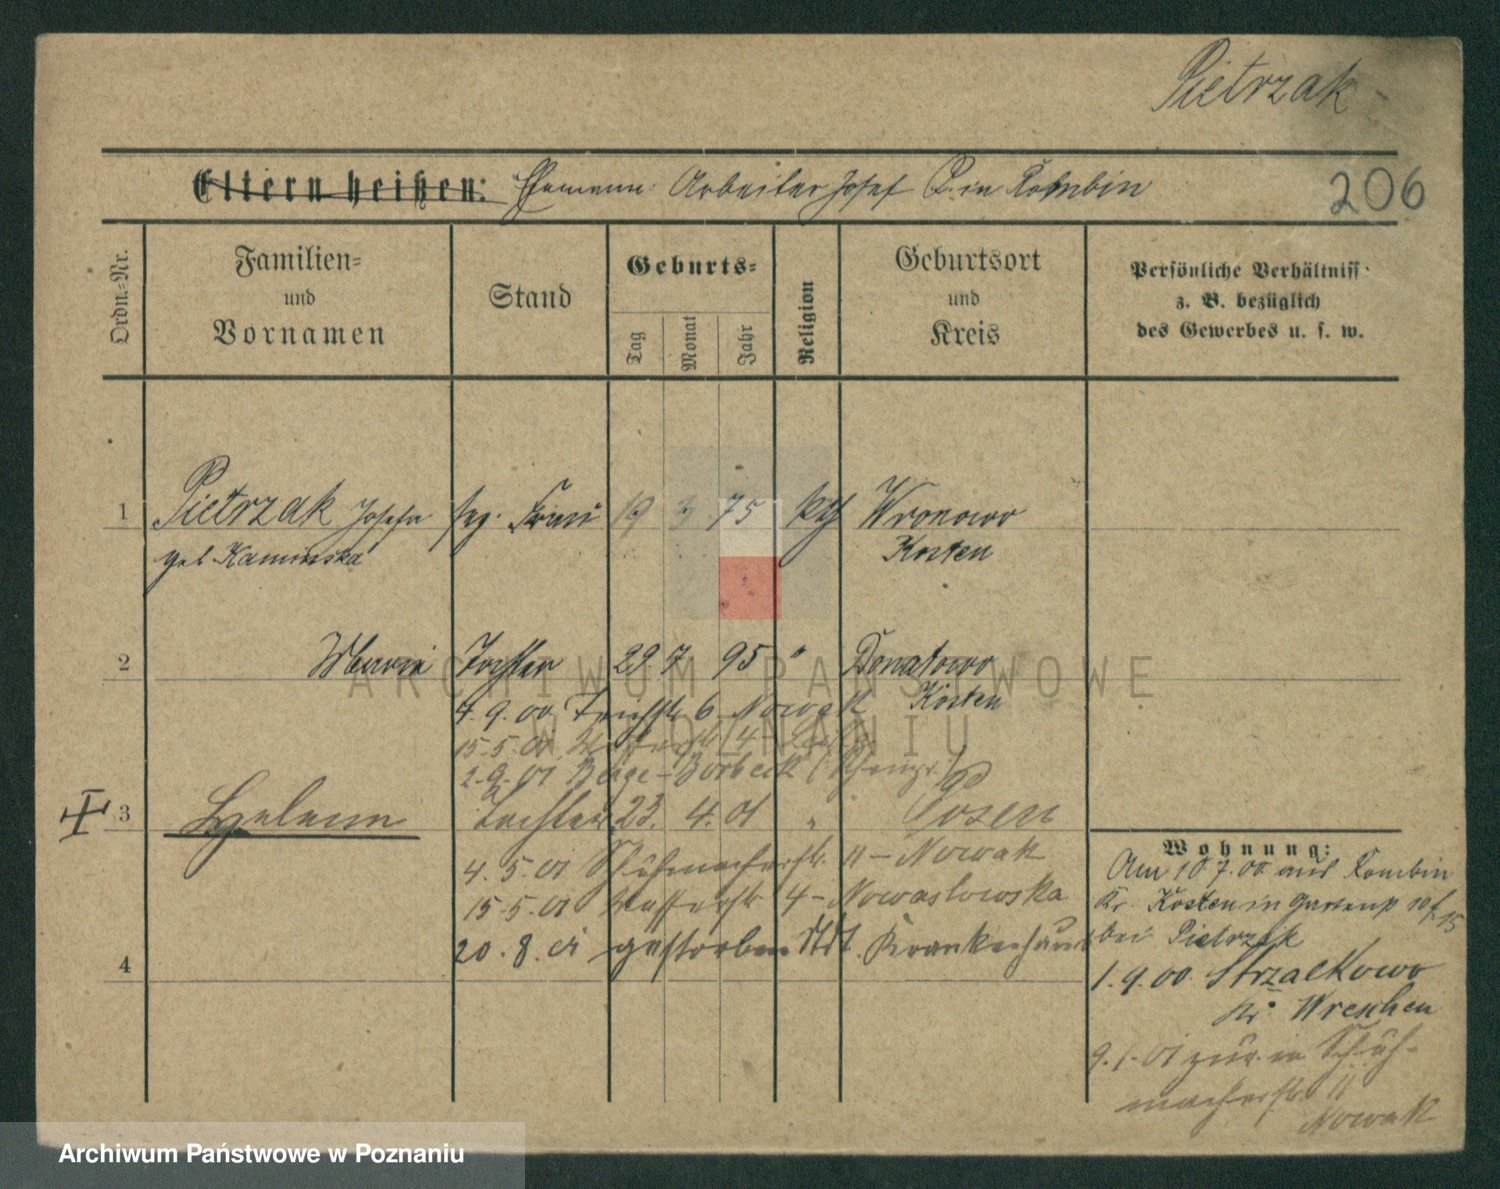 Pietrzak
Eltern heißen: Ehemann Arbeiter Josef P. in Kombin
206
Ordn.-Nr.
Familien-
und
Vornamen
Stand
Geburts-
Tag
Monat
Jahr
Religion
Geburtsort
und
Kreis
Persönliche Verhältniss
z. B. bezüglich
des Gewerbes u. s. w.
1 Pietrzak Josefa sep. Frau 19 3 75 kth Wronowo
geb Kaminska Kosten
2 Maria Tochter 29 7 95 " Donatowo
Kosten
4.9.00 6 Nowak
15.5.01 4
2.9.01 Berge-Borbeck
3 Helene Tochter 23. 4. 01 " Posen
4.5.01 Schuhmacherstr. 11 - Nowak
15.5.01 Wasserstr 4 - Nowaslowska
20.8.01 gestorben Stdt. Krankenhaus
4
Wohnung:
Am 10 7.00 aus Kombin
Kr. Kosten in
bei Pietrzak
1.9.00. Strzalkowo
Kr. Wreschen
9.1.01 zur. in Schuh-
macherstr. 11
Nowak
ARCHIWUM PAŃSTWOWE
W POZNANIU
Archiwum Państwowe w Poznaniu